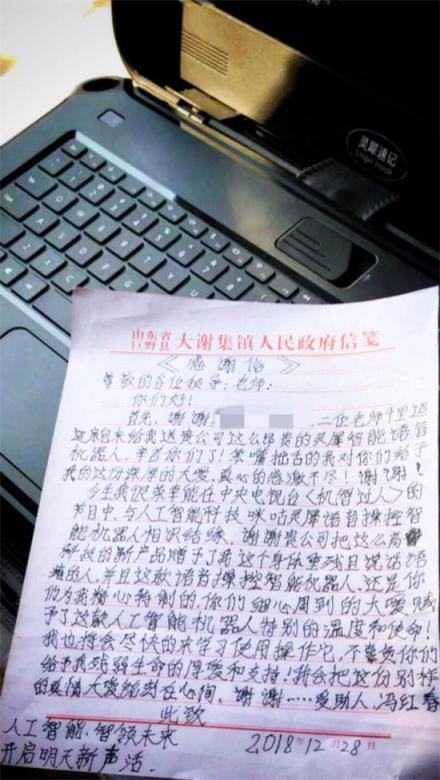 灵犀速记
山东省
巨野县
大谢集镇人民政府信笺
《感谢信》
尊敬的各位领导;老师:
你们好!
首先,谢谢 二位老师千里迢
迢亲自来给我送贵公司这么昂贵的灵犀智能语音
机器人,辛苦你们了!笨嘴拙舌的我对你们给予
我的这份深厚的大爱,真心的感激不尽!谢谢!
今生我很荣幸能在中央电视台《机智过人》的
节目中,与人工智能科技咪咕灵犀语音操控智
能机器人相识结缘,谢谢贵公司把这么高
科技的新产品赠予了我这个身体重残且说话语
的人,并且这款语音操控智能机器人,还是你
们为我精心特制的,你们细心周到的大爱,赋
予了这款人工智能机器人特别的温度和使命!
我也将会尽快的来学习使用操作它,不辜负你们
给予我残弱生命的厚爱和支持!我会把这份别样
的真情大爱铭刻在心间。谢谢……受助人,冯红春
此致
人工智能,智领未来
2018年12月28日
开启明天新声活.